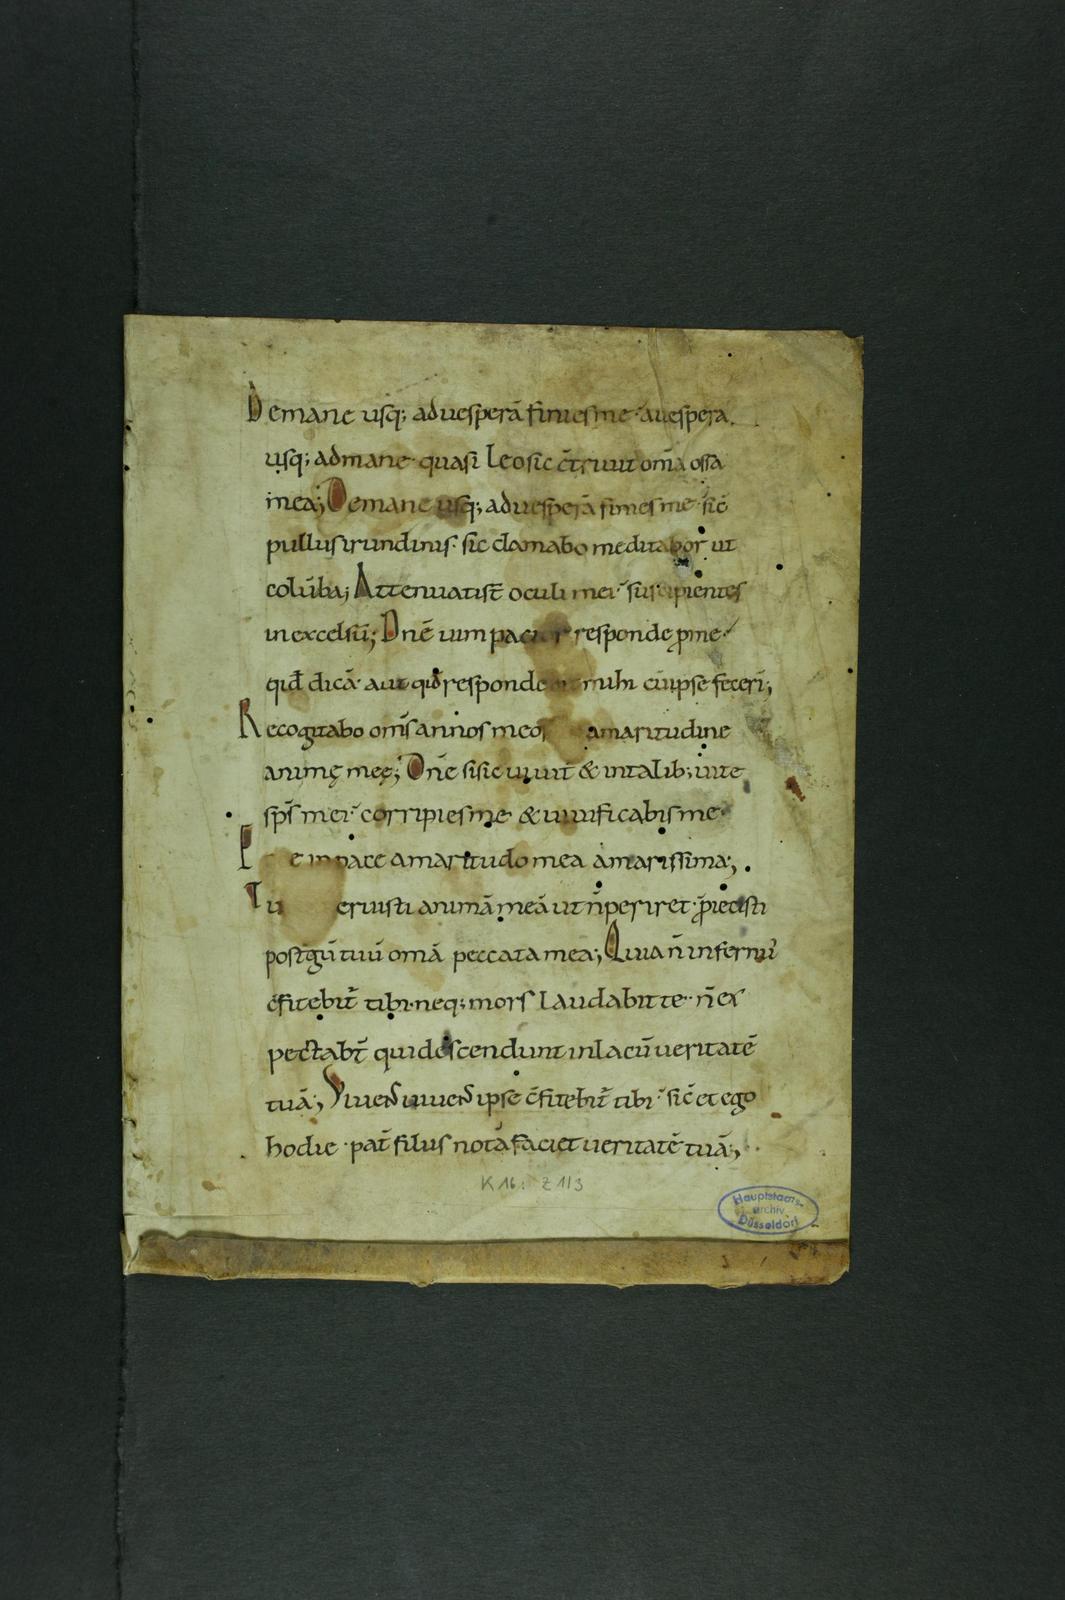 Demane usq; aduesperā finies me· auespera
usq; admane· quasi Leo sic c̄triuit om̄a ossa
mea; Demane usq; aduesperā finies me· sic̄
pullus irundinis· sic clamabo meditabor ut
colūba; Attenuatis̄t oculi mei· suscipientes
in excelsū; Dn̄e uim pacior responde p̱me·
qid̄ dicā· aut qid̄ responde mihi cū ipse fecerī;
Recogitabo om̄s annos meos amaritudine
animę meę; Dn̄e si sic uiuit̄ & intalib; uite
sp̄s mei· corripies me· & uiuificabis me·
E e in pace amaritudo mea amarissima;
Tu eruisti animā meā ut n̄ periret· p̄iecisti
post t̄gū tuū om̄a peccata mea; Quia n̄ infernus
c̄fitebit̄ tibi· neq; mors Laudabit te· n̄ ex
pectabt̄ qui descendunt inlacū ueritatē
tuā; Viuens uiuens ipse c̄fitebit̄ tibi· sic̄ et ego
hodie· pat̄ filius notā faciet ueritatē tuā;
K 16: Z 1/3
Hauptstaats-
archiv
Düsseldorf